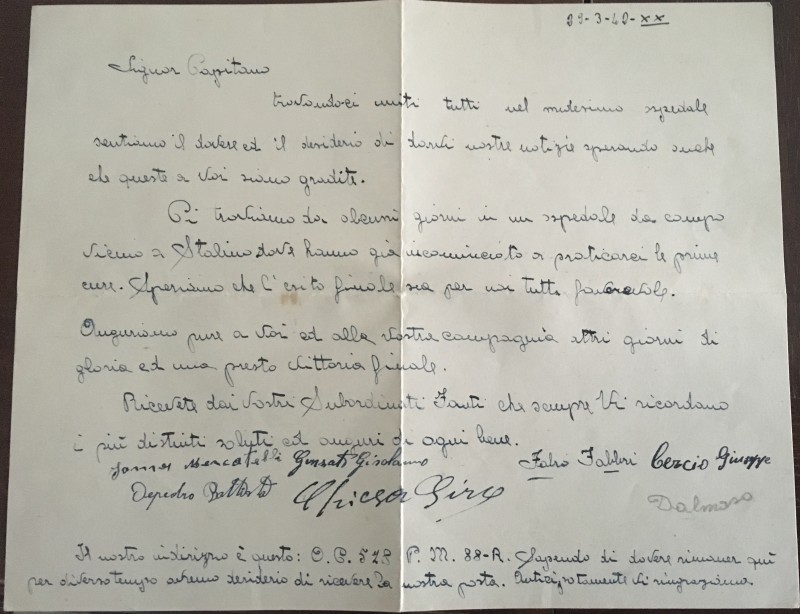 29-3-42-XX
Signor Capitano
trovandoci uniti tutti nel medesimo ospedale
sentiamo il dovere ed il desiderio di darvi nostre notizie sperando anche
che queste a Voi siano gradite.
Ci troviamo da alcuni giorni in un ospedale da campo
vicino a Stalino dove hanno già incominciato a praticarci le prime
cure. Speriamo che l'esito finale sia per noi tutti favorevole.
Auguriamo pure a Voi ed alla Vostra compagnia altri giorni di
gloria ed una presto Vittoria finale.
Ricevete dai Vostri Subordinati Fanti che sempre Vi ricordano
i più distinti saluti ed auguri di ogni bene.
Mencatelli Girolamo Fabro Fabbri Cercio Giuseppe
Depedro Battista Dalmaso
Il nostro indirizzo è questo: O.C. 578 P.M. 88-R. Sapendo di dovere rimaner quì
per diverso tempo avremo desiderio di ricevere la nostra posta. Anticipatamente Vi ringraziamo.